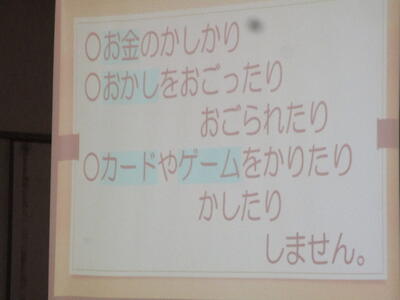 ○お金のかしかり
○おかしをおごったり
おごられたり
○カードやゲームをかりたり
かしたり
しません。